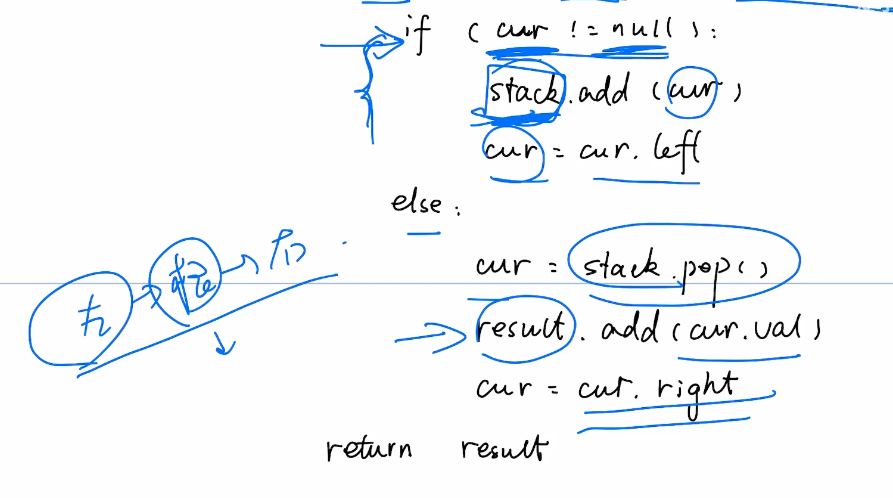 if ( cur != null ) :
stack.add ( cur )
cur = cur. left
else :
cur = stack.pop()
左 → 中 → 右
result. add ( cur.val )
cur = cur. right
return result